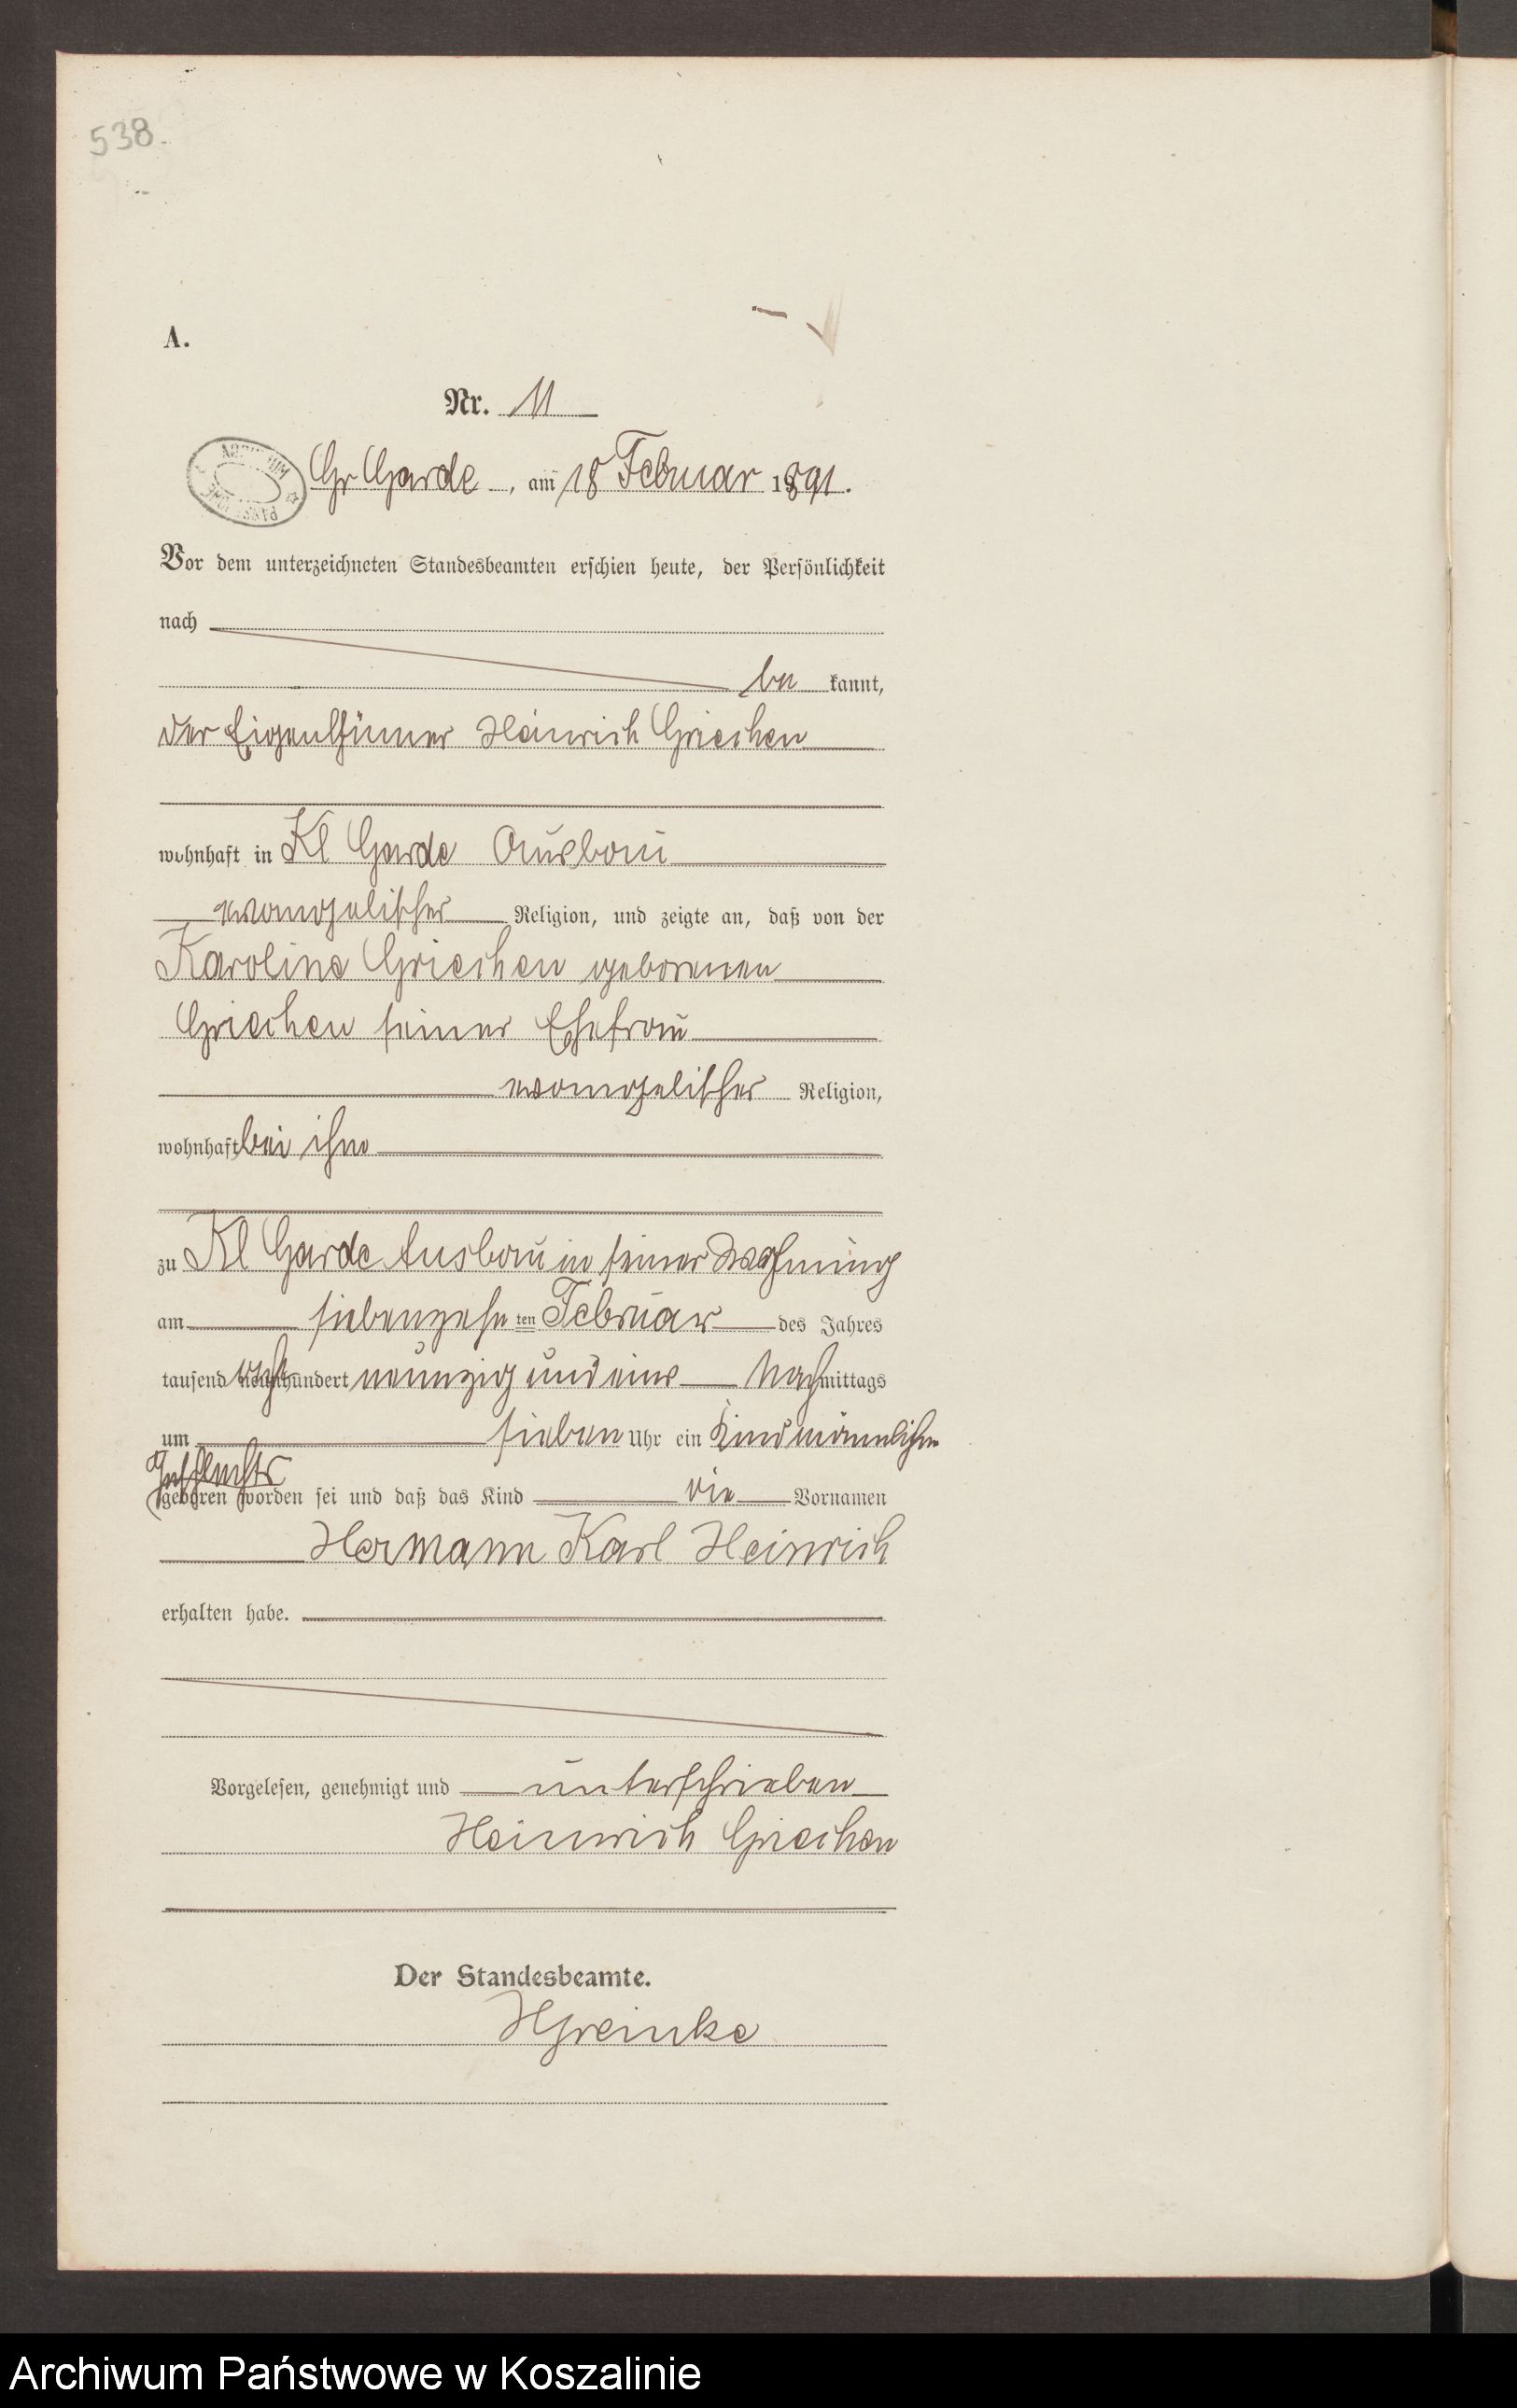 538.
A.
Nr. 11
Gr Garde, am 18 Februar 1891.
Vor dem unterzeichneten Standesbeamten erschien heute, der Persönlichkeit
nach
be kannt,
der Eigenthümer Heinrich Griechen
wohnhaft in Kl Garde Ausbau
evangelischer Religion, und zeigte an, daß von der
Karoline Griechen geborenen
Griechen seiner Ehefrau
evangelischer Religion,
wohnhaft bei ihm
zu Kl Garde Ausbau in seiner Wohnung
am siebenzehn ten Februar des Jahres
tausend achthundert neunzig und eins Nachmittags
um sieben Uhr ein Kind männlichen
Geschlechts
geboren worden sei und daß das Kind die Vornamen
Hermann Karl Heinrich
erhalten habe.
Vorgelesen, genehmigt und unterschrieben
Heinrich Griechen
Der Standesbeamte.
HGreinke
Archiwum Państwowe w Koszalinie